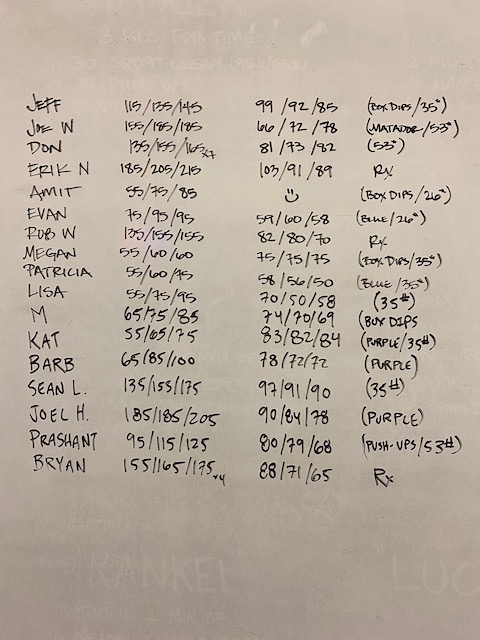 3 RDS FOR TIME
JEFF 115/135/145 99/92/85 (BOX DIPS/35#)
JOE W 155/185/185 66/72/78 (MATADOR/53#)
DON 135/155/165x7 81/73/82 (53#)
ERIK N 185/205/215 103/91/89 Rx
AMIT 55/75/85 (BOX DIPS/26#)
EVAN 75/95/95 59/60/58 (BLUE/26#)
ROB W 135/155/155 82/80/70 Rx
MEGAN 55/60/60 75/75/75 (BOX DIPS/35#)
PATRICIA 55/60/75 58/56/50 (BLUE/35#)
LISA 55/75/95 70/50/58 (35#)
M 65/75/85 74/70/69 (BOX DIPS
KAT 55/65/75 83/82/84 (PURPLE/35#)
BARB 65/85/100 78/72/72 (PURPLE)
SEAN L. 135/155/175 97/91/90 (35#)
JOEL H. 185/185/205 90/84/78 (PURPLE)
PRASHANT 95/115/125 80/79/68 (PUSH-UPS/53#)
BRYAN 155/165/175x4 88/71/65 Rx
RANKEL LUC